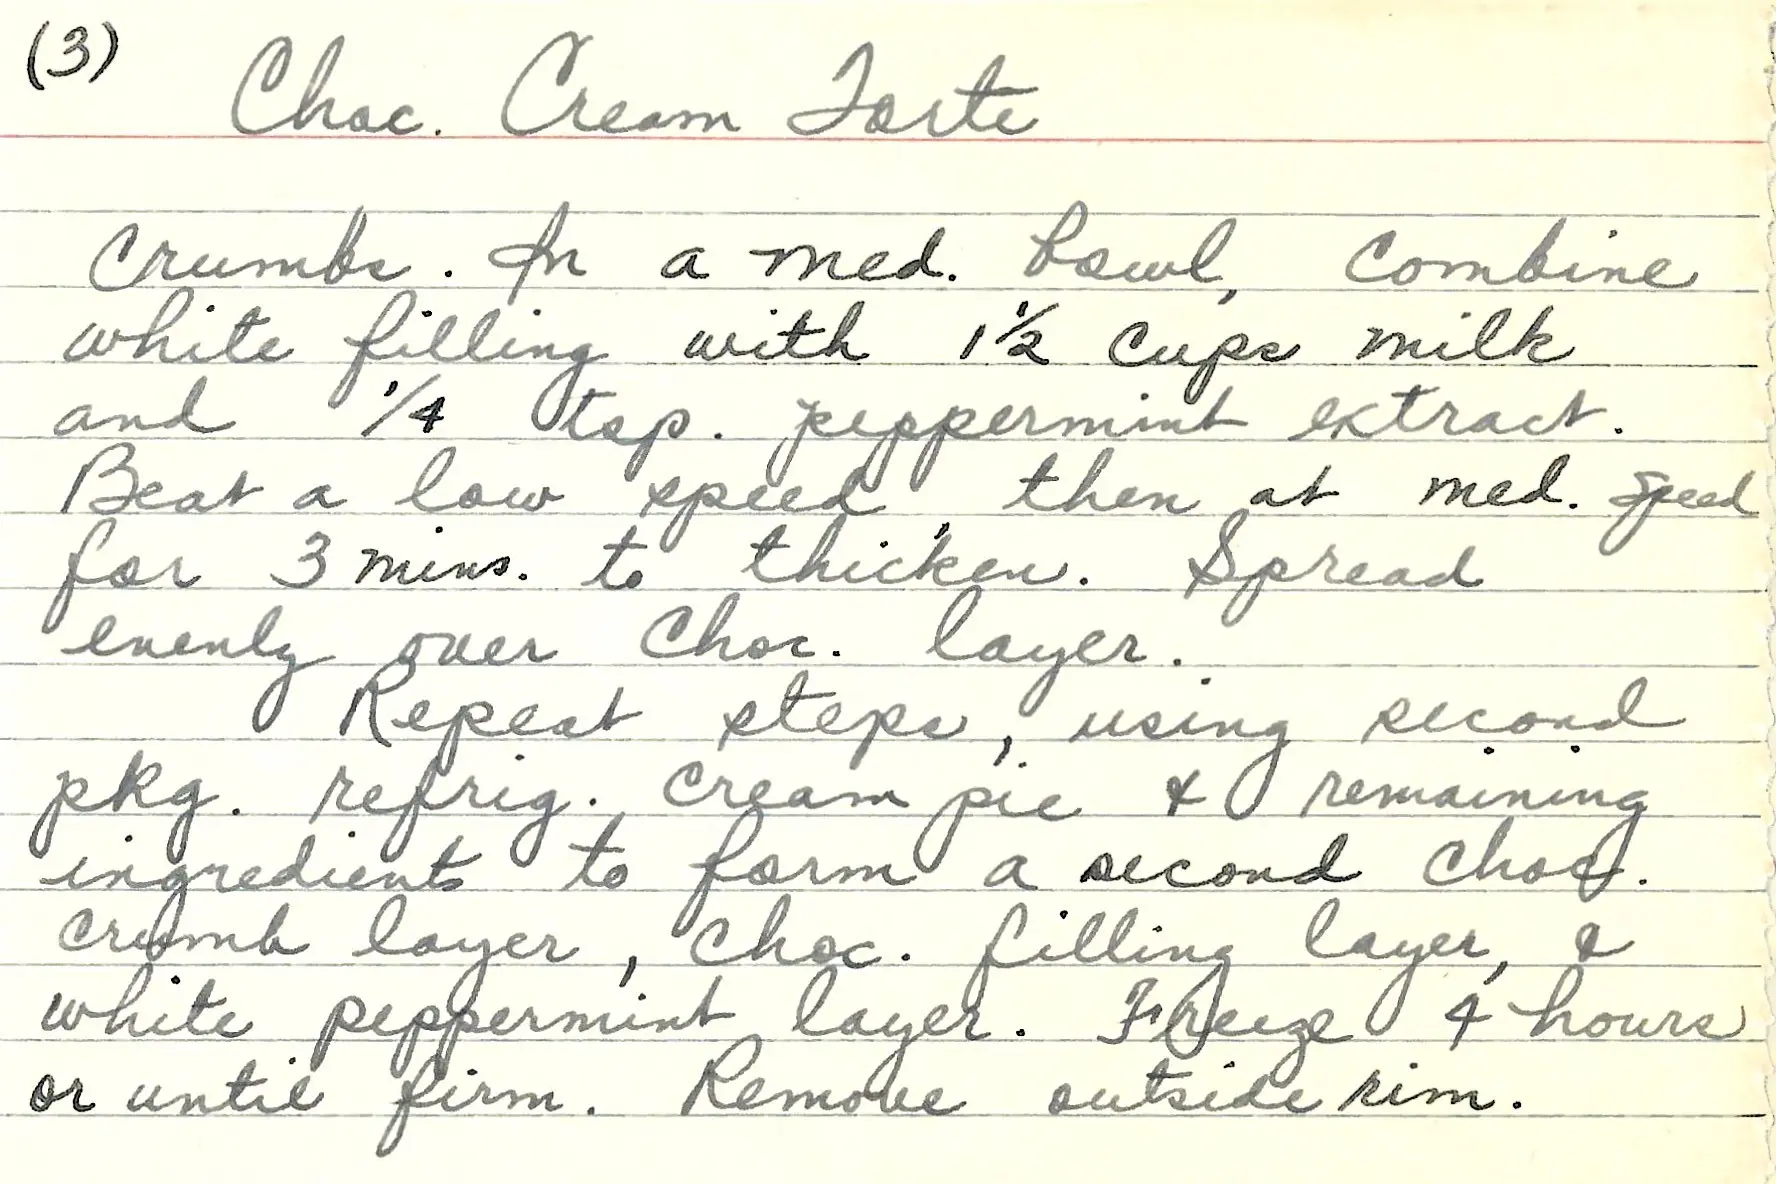 (3)
Choc. Cream Torte
Crumbs. In a med. bowl, combine
white filling with 1 1/2 cups milk
and 1/4 tsp. peppermint extract.
Beat a low speed, then at med. speed
for 3 mins. to thicken. Spread
evenly over Choc. layer.
Repeat steps, using second
pkg. refrig. cream pie & remaining
ingredients to form a second choc.
crumb layer, choc. filling layer, &
white peppermint layer. Freeze 4 hours
or until firm. Remove outside rim.